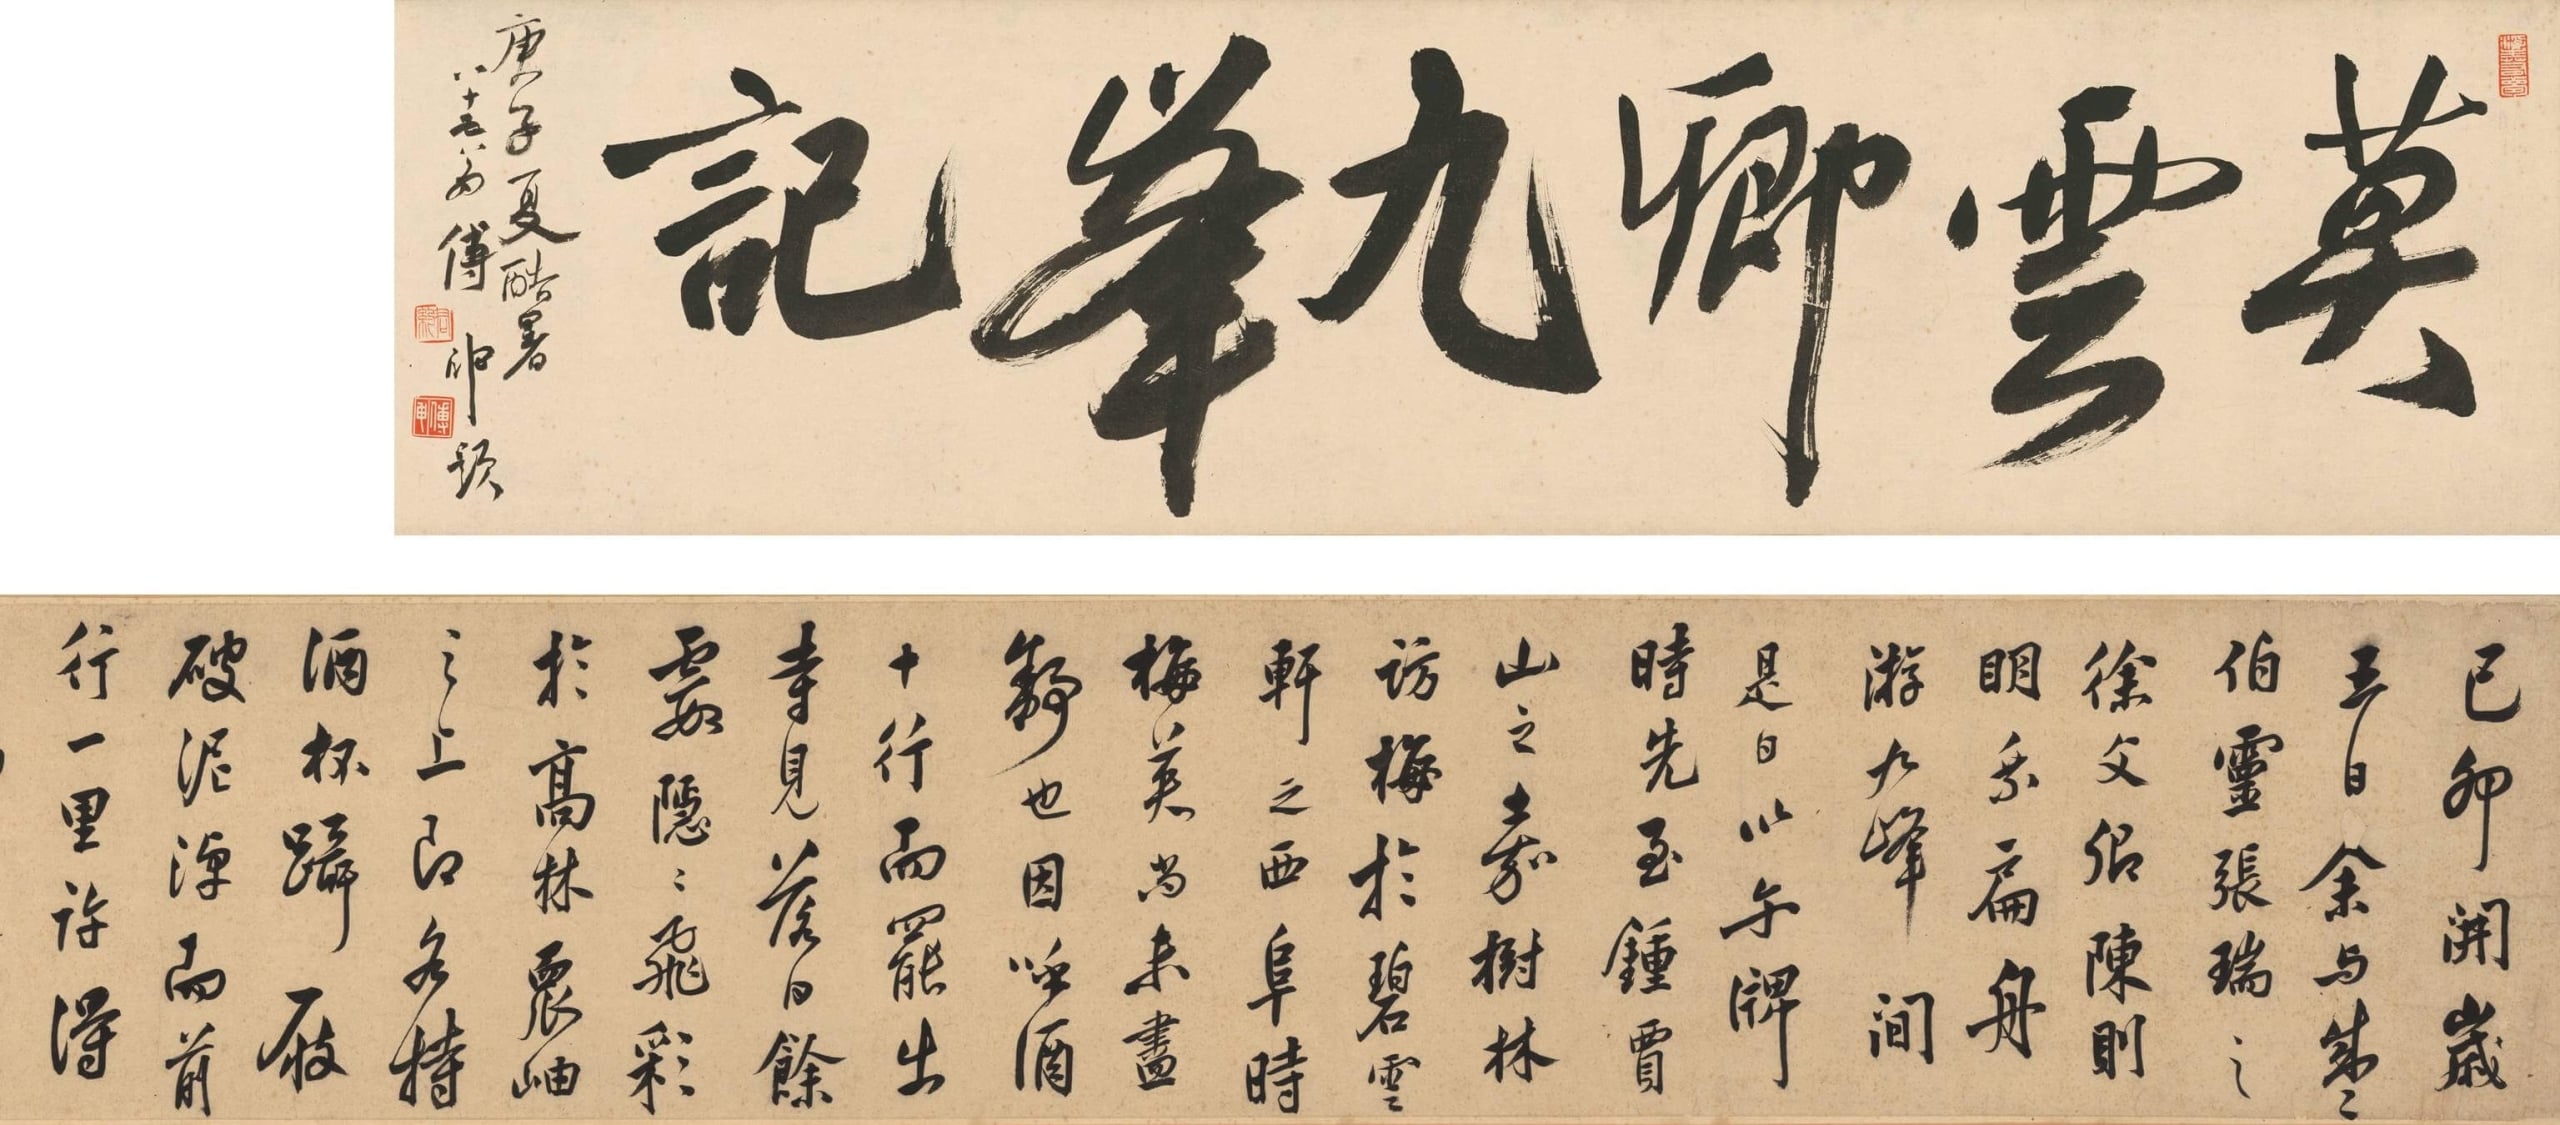 莫雲卿九峯記
庚子夏酷暑
八十五八不傅申題
傅申
己卯開歲
五日余与朱〻
伯靈張瑞之
徐文卿陳則
明乘扁舟
游九峰間
是日以午牌
時先至鍾賈
山之嘉樹林
訪梅於碧雲
軒之西阜時
梅英尚未盡
舒也因呼酒
十行而罷出
寺見落日餘
霞隱〻飛彩
於高林裊岫
之上即各持
酒杯躡屐
破泥淖而前
行一里許得